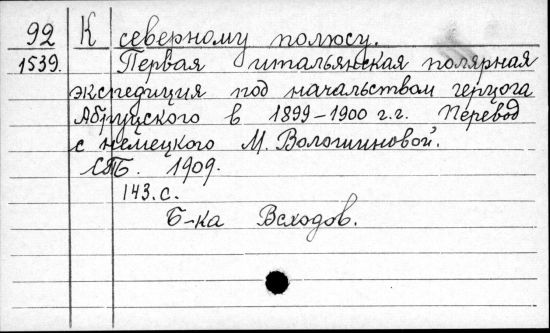 92 К северному полюсу.
1539. Первая итальянская полярная
экспедиция под начальством герцога
Абруцского в 1899–1900 г.г. Перевод
с немецкого М. Волошиновой.
СПБ. 1909.
143. с.
Б-ка Всходов.